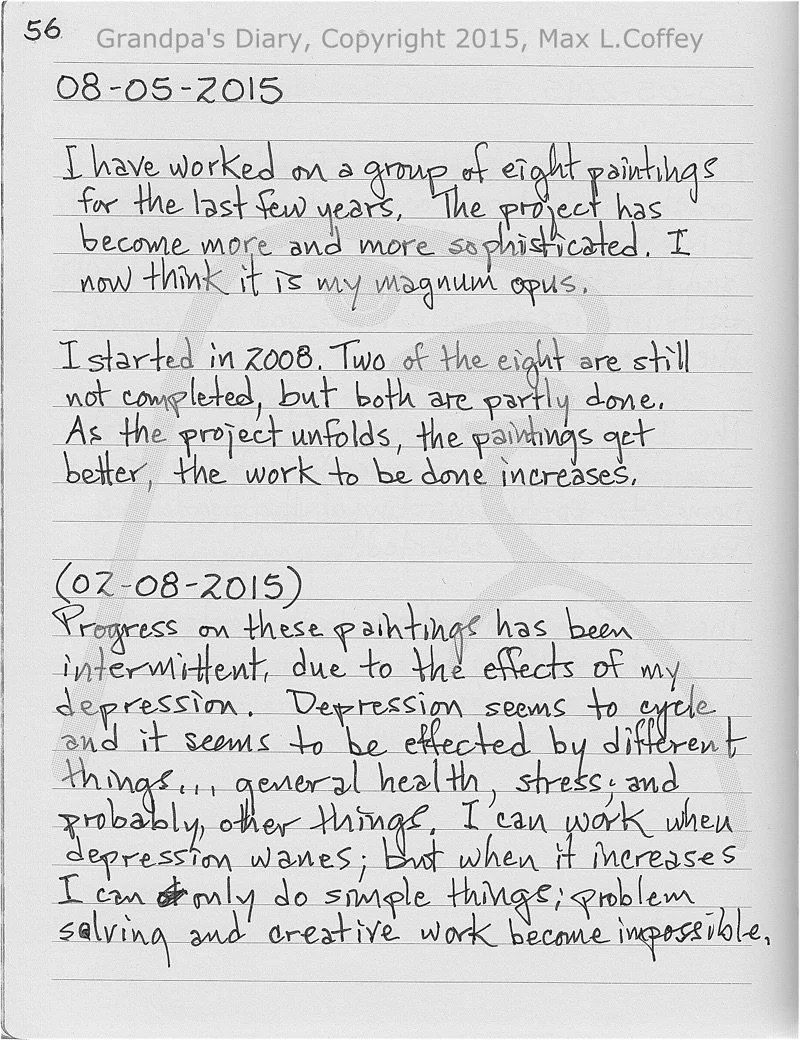 56
Grandpa's Diary, Copyright 2015, Max L.Coffey
08-05-2015
I have worked on a group of eight paintings
for the last few years. The project has
become more and more sophisticated. I
now think it is my magnum opus.
I started in 2008. Two of the eight are still
not completed, but both are partly done.
As the project unfolds, the paintings get
better, the work to be done increases.
(02-08-2015)
Progress on these paintings has been
intermittent, due to the effects of my
depression. Depression seems to cycle
and it seems to be effected by different
things... general health, stress; and
probably, other things. I can work when
depression wanes; but when it increases
I can only do simple things; problem
solving and creative work become impossible.